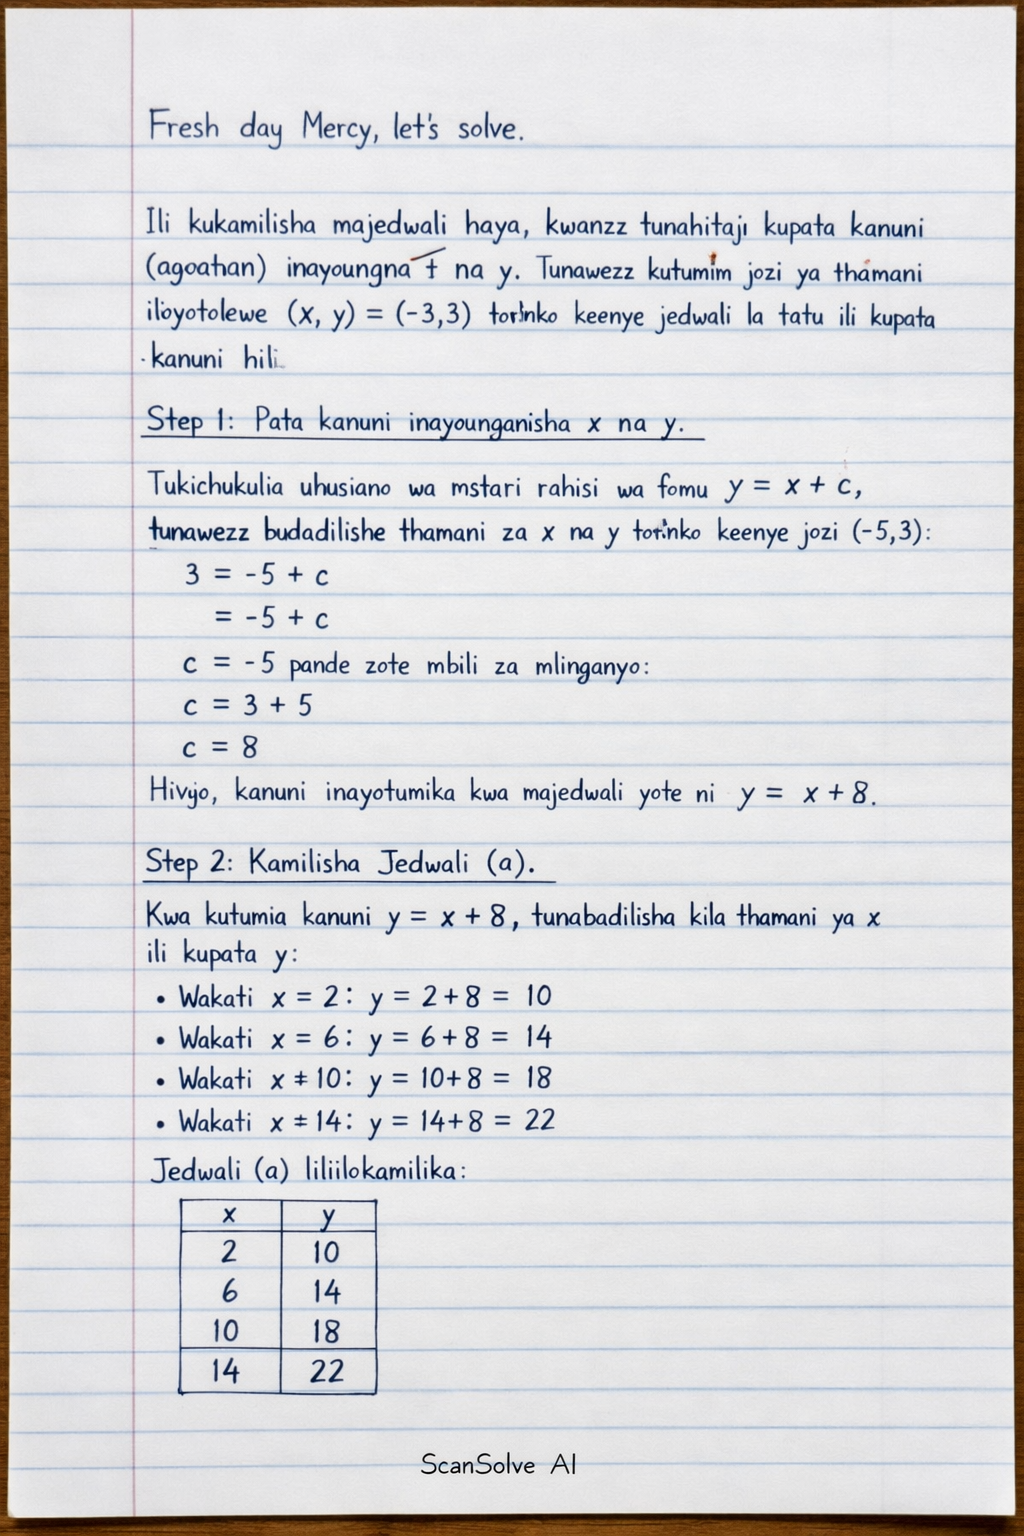 Fresh day Mercy, let's solve.
Ili kukamilisha majedwali haya, kwanzz tunahitaji kupata kanuni
(agoathan) inayoungna t na y. Tunawezz kutumim jozi ya thamani
iliyotolewe (x, y) = (-3,3) keenye jedwali la tatu ili kupata
kanuni hili
Step 1: Pata kanuni inayounganisha x na y.
Tukichukulia uhusiano wa mstari rahisi wa fomu y = x + c,
tunawezz budadilishe thamani za x na y keenye jozi (-5,3):
3 = -5 + c
= -5 + c
c = -5 pande zote mbili za mlinganyo:
c = 3 + 5
c = 8
Hivyo, kanuni inayotumika kwa majedwali yote ni y = x + 8.
Step 2: Kamilisha Jedwali (a).
Kwa kutumia kanuni y = x + 8, tunabadilisha kila thamani ya x
ili kupata y:
• Wakati x = 2: y = 2+8 = 10
• Wakati x = 6: y = 6+8 = 14
• Wakati x ≠ 10: y = 10+8 = 18
• Wakati x = 14: y = 14+8 = 22
Jedwali (a) liliilokamilika:
x y
2 10
6 14
10 18
14 22
ScanSolve AI